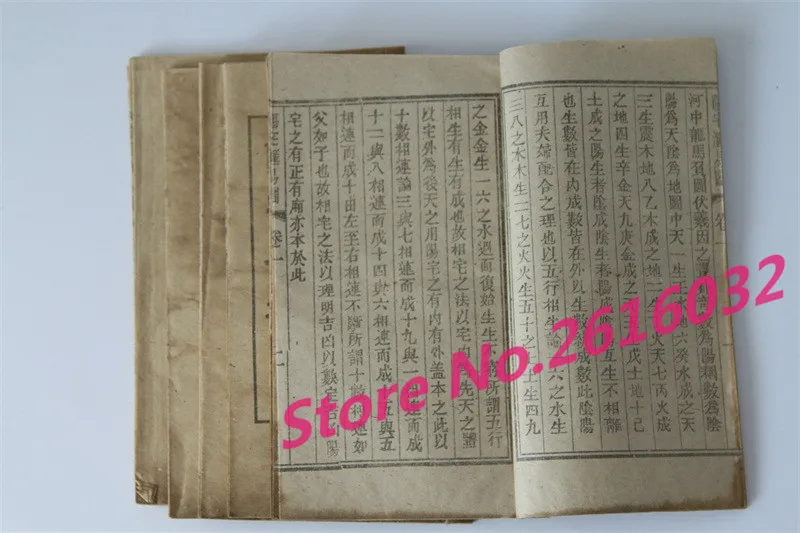 河中龍馬負圖伏羲因之
陽爲天陰爲地圖中天一生水地六癸水成之天
三生震木地八乙木成之地二生火天七丙火成
之地四生辛金天九庚金成之天五生戊土地十己
土成之陽生者陰成陰生者陽成陰陽互生不相離
也生數皆在內成數皆在外以生數成數此陰陽
互用夫婦配合之理也以五行相生論一六之水生
三八之木木生二七之火火生五十之土土生四九
之金金生一六之水週而復始生生不窮所謂五行
相生有生有成也故相宅之法以宅內先天之體
以宅外爲後天之用陽宅之有內有外葢本之此以
十數相連論三與七相連而成十九與一相連而成
十二與八相連而成十四與六相連而成十五與五
相連而成十由左至右相連不斷所謂十數相連如
父如子也故相宅之法以理明吉凶以數定 陽
宅之有正有廂亦本於此
卷一
Store No.2616032